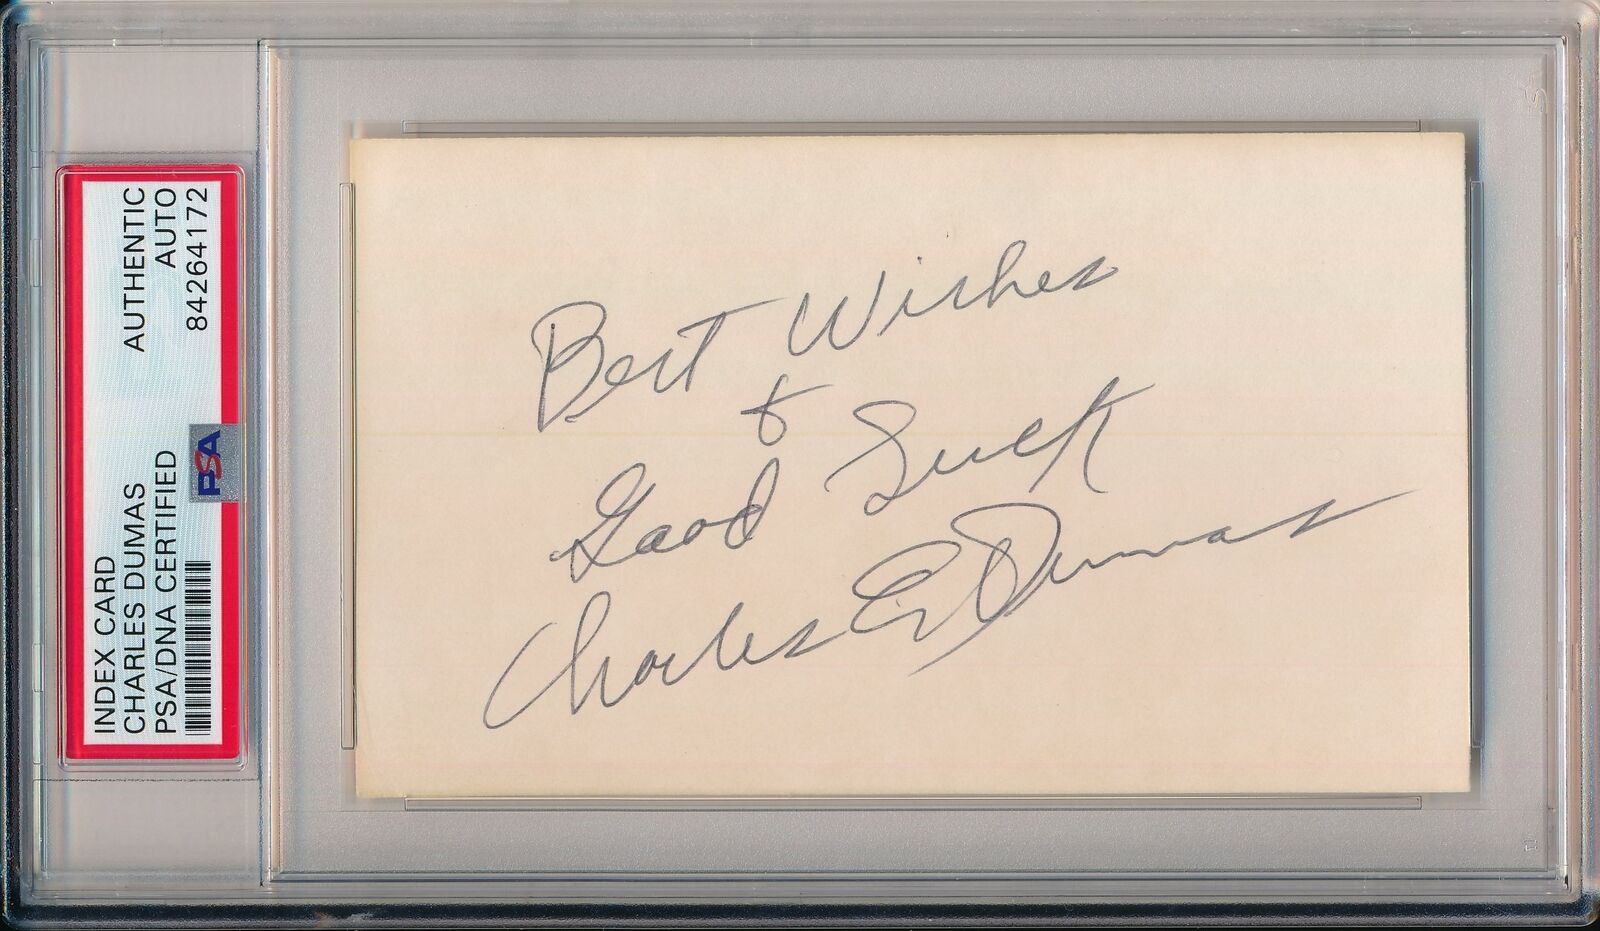 INDEX CARD
CHARLES DUMAS
PSA/DNA CERTIFIED
AUTHENTIC
AUTO
84264172
PSA
Best Wishes
&
Good Luck
Charles E. Dumas